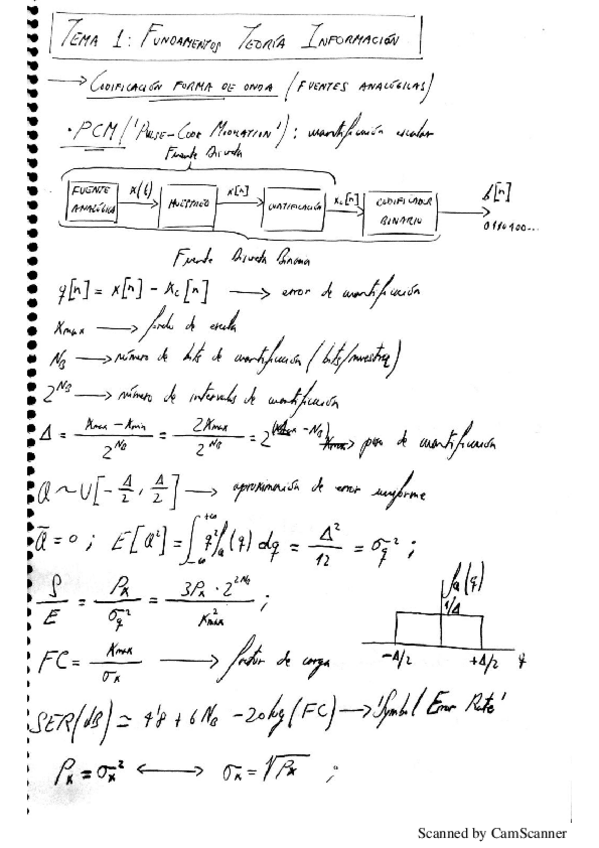 TEMA 1: FUNDAMENTOS TEORÍA INFORMACIÓN
→ CODIFICACIÓN FORMA DE ONDA (FUENTES ANALÓGICAS)
· PCM ('PULSE-CODE MODULATION'): cuantificación escalar
Fuente Discreta
FUENTE ANALÓGICA x(t) MUESTREO x[n] CUANTIFICACIÓN x_c[n] CODIFICADOR BINARIO b[n]
0110100...
Fuente Discreta Binaria
q[n] = x[n] - x_c[n] → error de cuantificación
x_max → fondo de escala
N_B → número de bits de cuantificación (bits/muestra)
2^{N_B} → número de intervalos de cuantificación
Δ = (x_max - x_min)/2^{N_B} = 2x_max/2^{N_B} = 2^{(1 - N_B)} x_max → paso de cuantificación
Q ~ U[-Δ/2, Δ/2] → aproximación de error uniforme
Q̄ = 0 ; E[Q²] = ∫_{-∞}^{+∞} q² f_Q(q) dq = Δ²/12 = σ_q² ;
S/E = P_x/σ_q² = 3P_x · 2^{2N_B}/x²_max ;
f_Q(q)
1/Δ
-Δ/2 +Δ/2 q
FC = x_max/σ_x → factor de carga
SER(dB) ≃ 4'8 + 6N_B - 20log(FC) → 'Symbol Error Rate'
P_x = σ_x² ↔ σ_x = √P_x ;
Scanned by CamScanner